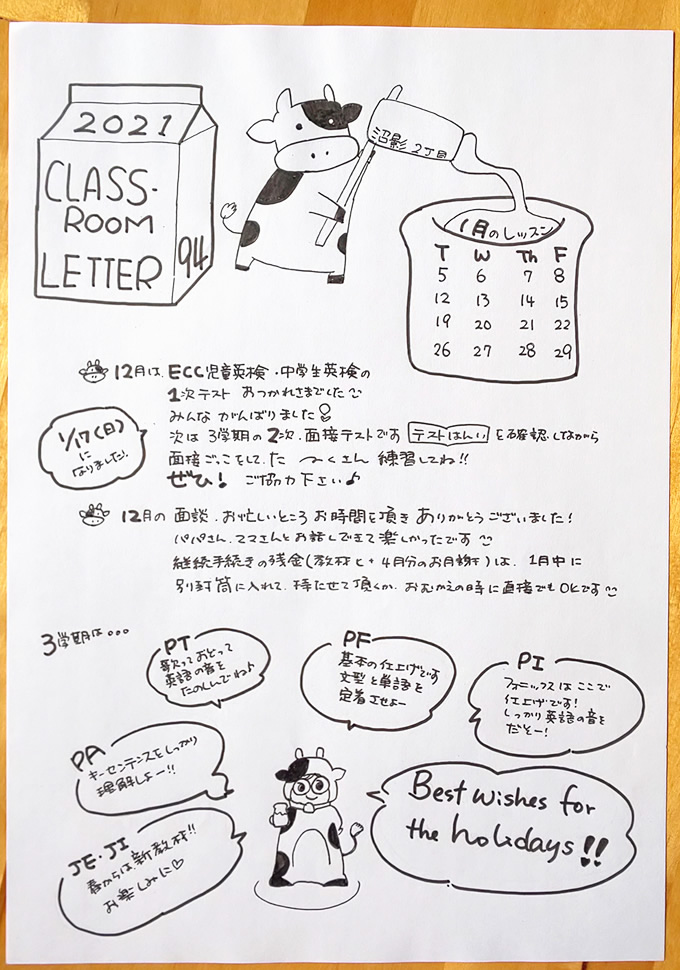 2021
CLASS-
ROOM
LETTER 94
沼影 2丁目
1月のレッスン
T W Th F
5 6 7 8
12 13 14 15
19 20 21 22
26 27 28 29
12月は、ECC児童英検・中学生英検の
1次テスト おつかれさまでした
みんな がんばりました!
次は 3学期の 2次、面接テストです テストはんい を確認しながら
面接ごっこをして、た〜くさん 練習してね!!
ぜひ! ご協力下さい♪
1/17(日)
に
なりました!
12月の 面談、お忙しいところ お時間を頂き ありがとうございました!
パパさん、ママさんとお話しできて楽しかったです
継続手続きの残金(教材と + 4月分のお月謝)は、1月中に
別封筒に入れて、持たせて頂くか、おむかえの時に直接でもOKです
3学期は...
PT
歌っておどって
英語の音を
たのしんでね♪
PF
基本の仕上げです
文型と単語を
定着させよー
PI
フォニックスはここで
仕上げです!
しっかり英語の音を
だそー!
PA
キーセンテンスをしっかり
理解しよー!!
JE・JI
春からは新教材!!
お楽しみに♡
Best wishes for
the holidays!!